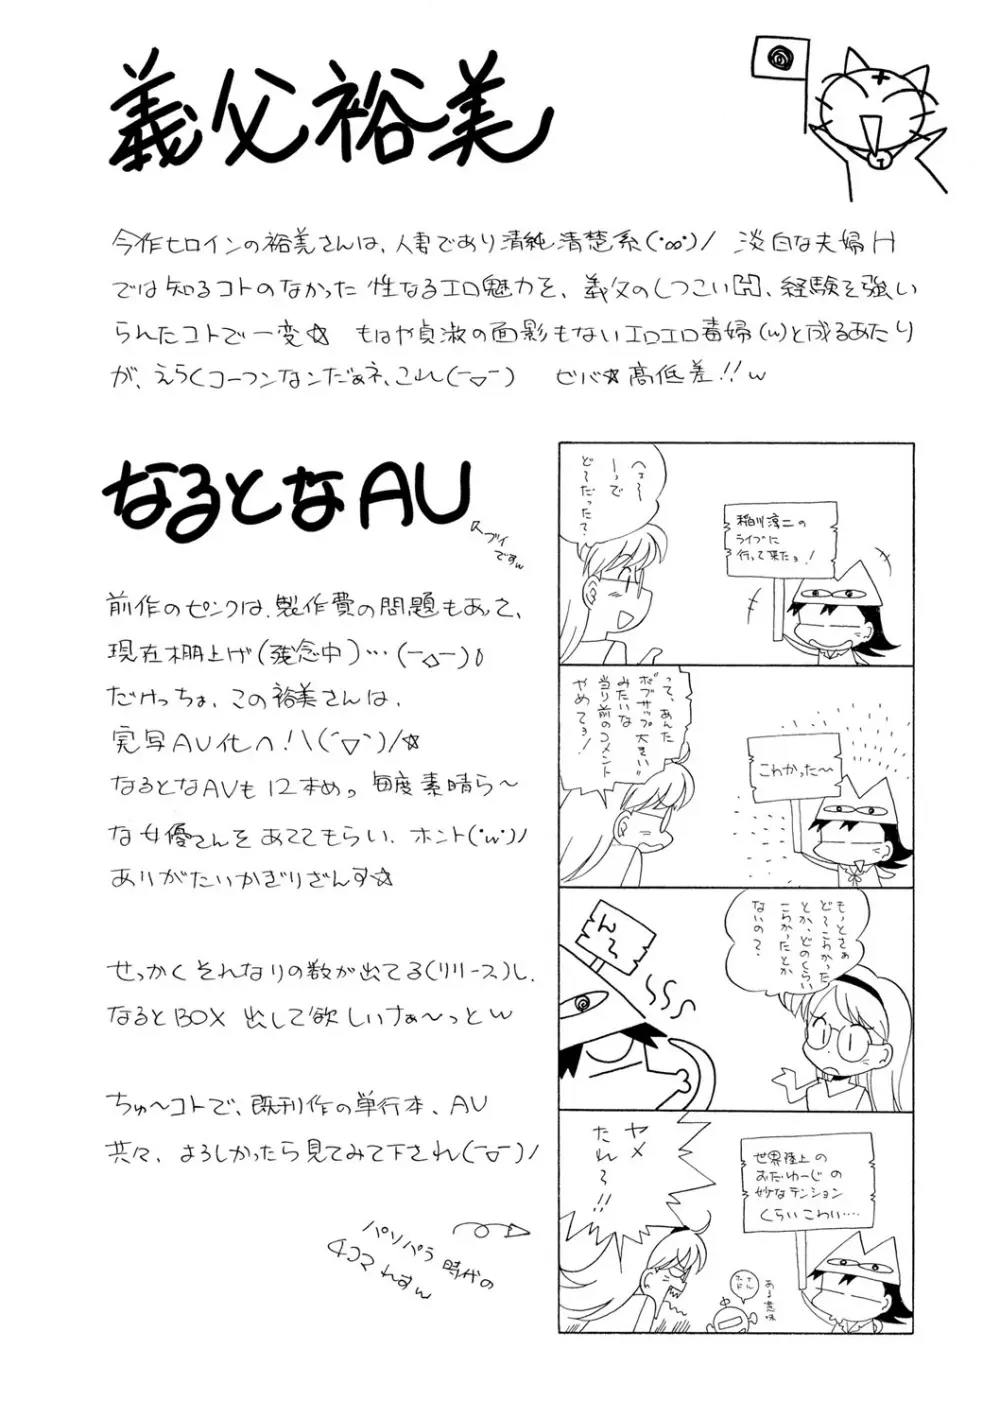 義父裕美
今作ヒロインの裕美さんは、人妻であり清純清楚系(･∞･)ノ 淡白な夫婦H
では知るコトのなかった 性なるエロ魅力を、義父のしつこいH、経験を強い
られたコトで一変☆ もはや貞淑の面影もないエロエロ毒婦(w)と成るあたり
が、えらくコーフンなンだぁネ、これ(ー▽ー) ビバ☆高低差!!w
なるとなAV
スブイ
ですw
前作のピンクは、製作費の問題もあって、
現在棚上げ(残念中)…(ー△ー)
だけっちょ、この裕美さんは、
実写AV化へ!\(´▽`)/☆
なるとなAVも12本め。毎度素晴ら〜
な女優さんをあててもらい、ホント(･w･)ノ
ありがたいかぎりざんす☆
せっかくそれなりの数が出てる(リリース)し、
なるとBOX 出して欲しいさぁ〜っとw
ちゅ〜コトで、既刊作の単行本、AV
共々、よろしかったら見てみて下され(ー▽ー)ノ
パソパラ時代の
4コマれすん
稲川淳二の
ライブに
行って来たっ!
へぇ〜
ーっで
ど〜だった?
こわかった〜
って、あんた
ボブサップ大きい"
みたいな
当り前のコメント
やめてョ!
もっとさぁ
ど〜こわかった
とか、どのくらい
こわかったとか
ないの?
ん〜
世界陸上の
おだゆーじの
妙なテンション
くらいこわい….
ヤメ
たれ〜!!
ある意味